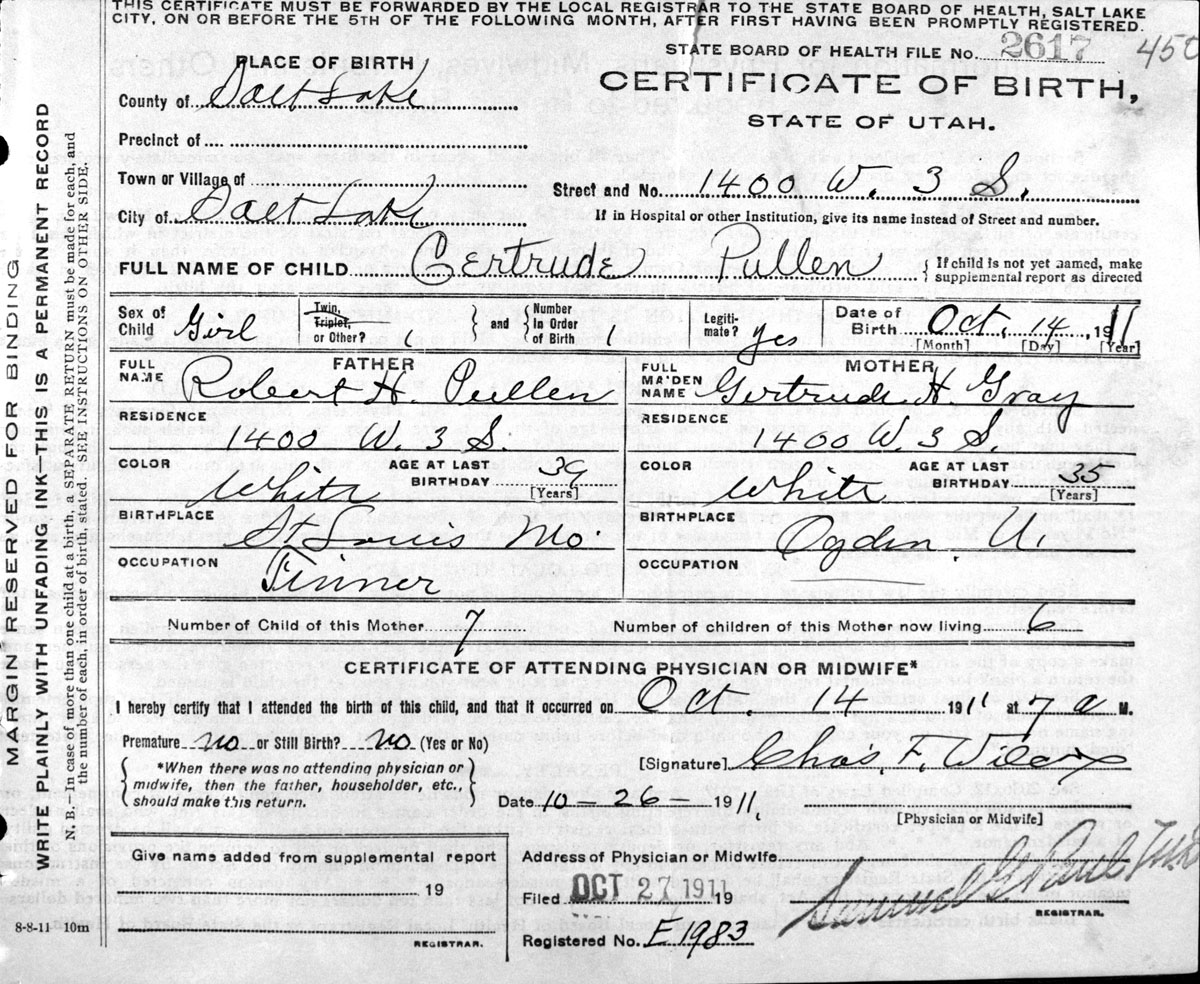 THIS CERTIFICATE MUST BE FORWARDED BY THE LOCAL REGISTRAR TO THE STATE BOARD OF HEALTH, SALT LAKE
CITY, ON OR BEFORE THE 5TH OF THE FOLLOWING MONTH, AFTER FIRST HAVING BEEN PROMPTLY REGISTERED.
STATE BOARD OF HEALTH FILE No. 2617 450
PLACE OF BIRTH
CERTIFICATE OF BIRTH,
STATE OF UTAH.
County of Salt Lake
Precinct of
Town or Village of
Street and No. 1400 W. 3 S.
City of Salt Lake
If in Hospital or other Institution, give its name instead of Street and number.
FULL NAME OF CHILD Gertrude Pullen { If child is not yet named, make
supplemental report as directed
Sex of Child Girl
Twin, Triplet, or Other? 1 } and { Number In Order of Birth 1
Legiti-mate? yes
Date of Birth Oct. 14 1911
[Month] [Day] [Year]
FATHER
FULL NAME Robert H. Pullen
MOTHER
FULL MAIDEN NAME Gertrude H. Gray
RESIDENCE 1400 W. 3 S.
RESIDENCE 1400 W. 3 S.
COLOR White AGE AT LAST BIRTHDAY 39 [Years]
COLOR White AGE AT LAST BIRTHDAY 35 [Years]
BIRTHPLACE St Louis Mo
BIRTHPLACE Ogden U.
OCCUPATION Tinner
OCCUPATION
Number of Child of this Mother 7 Number of children of this Mother now living 6
CERTIFICATE OF ATTENDING PHYSICIAN OR MIDWIFE*
I hereby certify that I attended the birth of this child, and that it occurred on Oct. 14 1911 at 7 a M.
Premature no or Still Birth? no (Yes or No)
{ *When there was no attending physician or
midwife, then the father, householder, etc.,
should make this return. }
[Signature] Chas. F. Wilcox
Date 10-26-1911.
[Physician or Midwife]
Give name added from supplemental report
19
REGISTRAR.
Address of Physician or Midwife
Filed OCT 27 1911 19
Samuel G. Paul
REGISTRAR.
Registered No. E1983
8-8-11 10m
MAGIN RESERVED FOR BINDING
WRITE PLAINLY WITH UNFADING INK-THIS IS A PERMANENT RECORD
N. B.-In case of more than one child at a birth, a SEPARATE RETURN must be made for each, and
the number of each, in order of birth, stated. SEE INSTRUCTIONS ON OTHER SIDE.